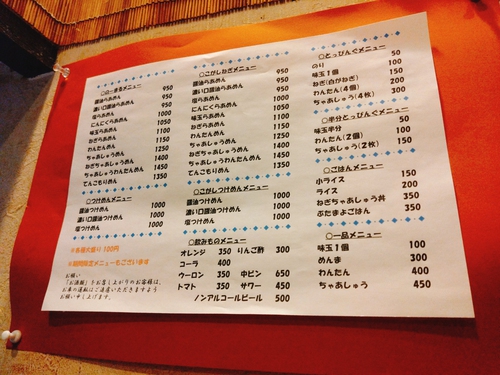 ○のーまるメニュー
醤油らあめん 950
濃い口醤油らあめん 950
塩らあめん 1000
にんにくらあめん 1050
味玉らあめん 1100
ねぎらあめん 1150
わんたんめん 1250
ちゃあしゅうめん 1400
ねぎちゃあしゅうめん 1450
ちゃあしゅうわんたんめん 1350
てんこもりめん
○つけめんメニュー
醤油つけめん 1000
濃い口醤油つけめん 1000
塩つけめん 1000
※各種大盛り 100円
※期間限定メニューもございます
お願い
「お酒類」をお召し上がりのお客様は、
お車の運転はご遠慮いただきますよう
お願い申し上げます。
○こがしねぎメニュー
醤油らあめん 950
濃い口醤油らあめん 950
塩らあめん 950
にんにくらあめん 1050
味玉らあめん 1050
ねぎらあめん 1100
わんたんめん 1150
ちゃあしゅうめん 1250
ねぎちゃあしゅうめん 1400
ちゃあしゅうわんたんめん 1450
てんこもりめん 1350
○こがしつけめんメニュー
醤油つけめん 1000
濃い口醤油つけめん 1000
塩つけめん 1000
○飲みものメニュー
オレンジ 350 りんご酢 300
コーラ 400
ウーロン 350 中ビン 650
トマト 350 サワー 450
ノンアルコールビール 500
○とっぴんぐメニュー
のり 50
味玉1個 100
ねぎ(白がねぎ) 150
わんたん(4個) 200
ちゃあしゅう(4枚) 300
○半分とっぴんぐメニュー
味玉半分 50
わんたん(2個) 100
ちゃあしゅう(2枚) 150
○ごはんメニュー
小ライス 150
ライス 200
ねぎちゃあしゅう丼 350
ぶたまよごはん 350
○一品メニュー
味玉1個 100
めんま 300
わんたん 400
ちゃあしゅう 450